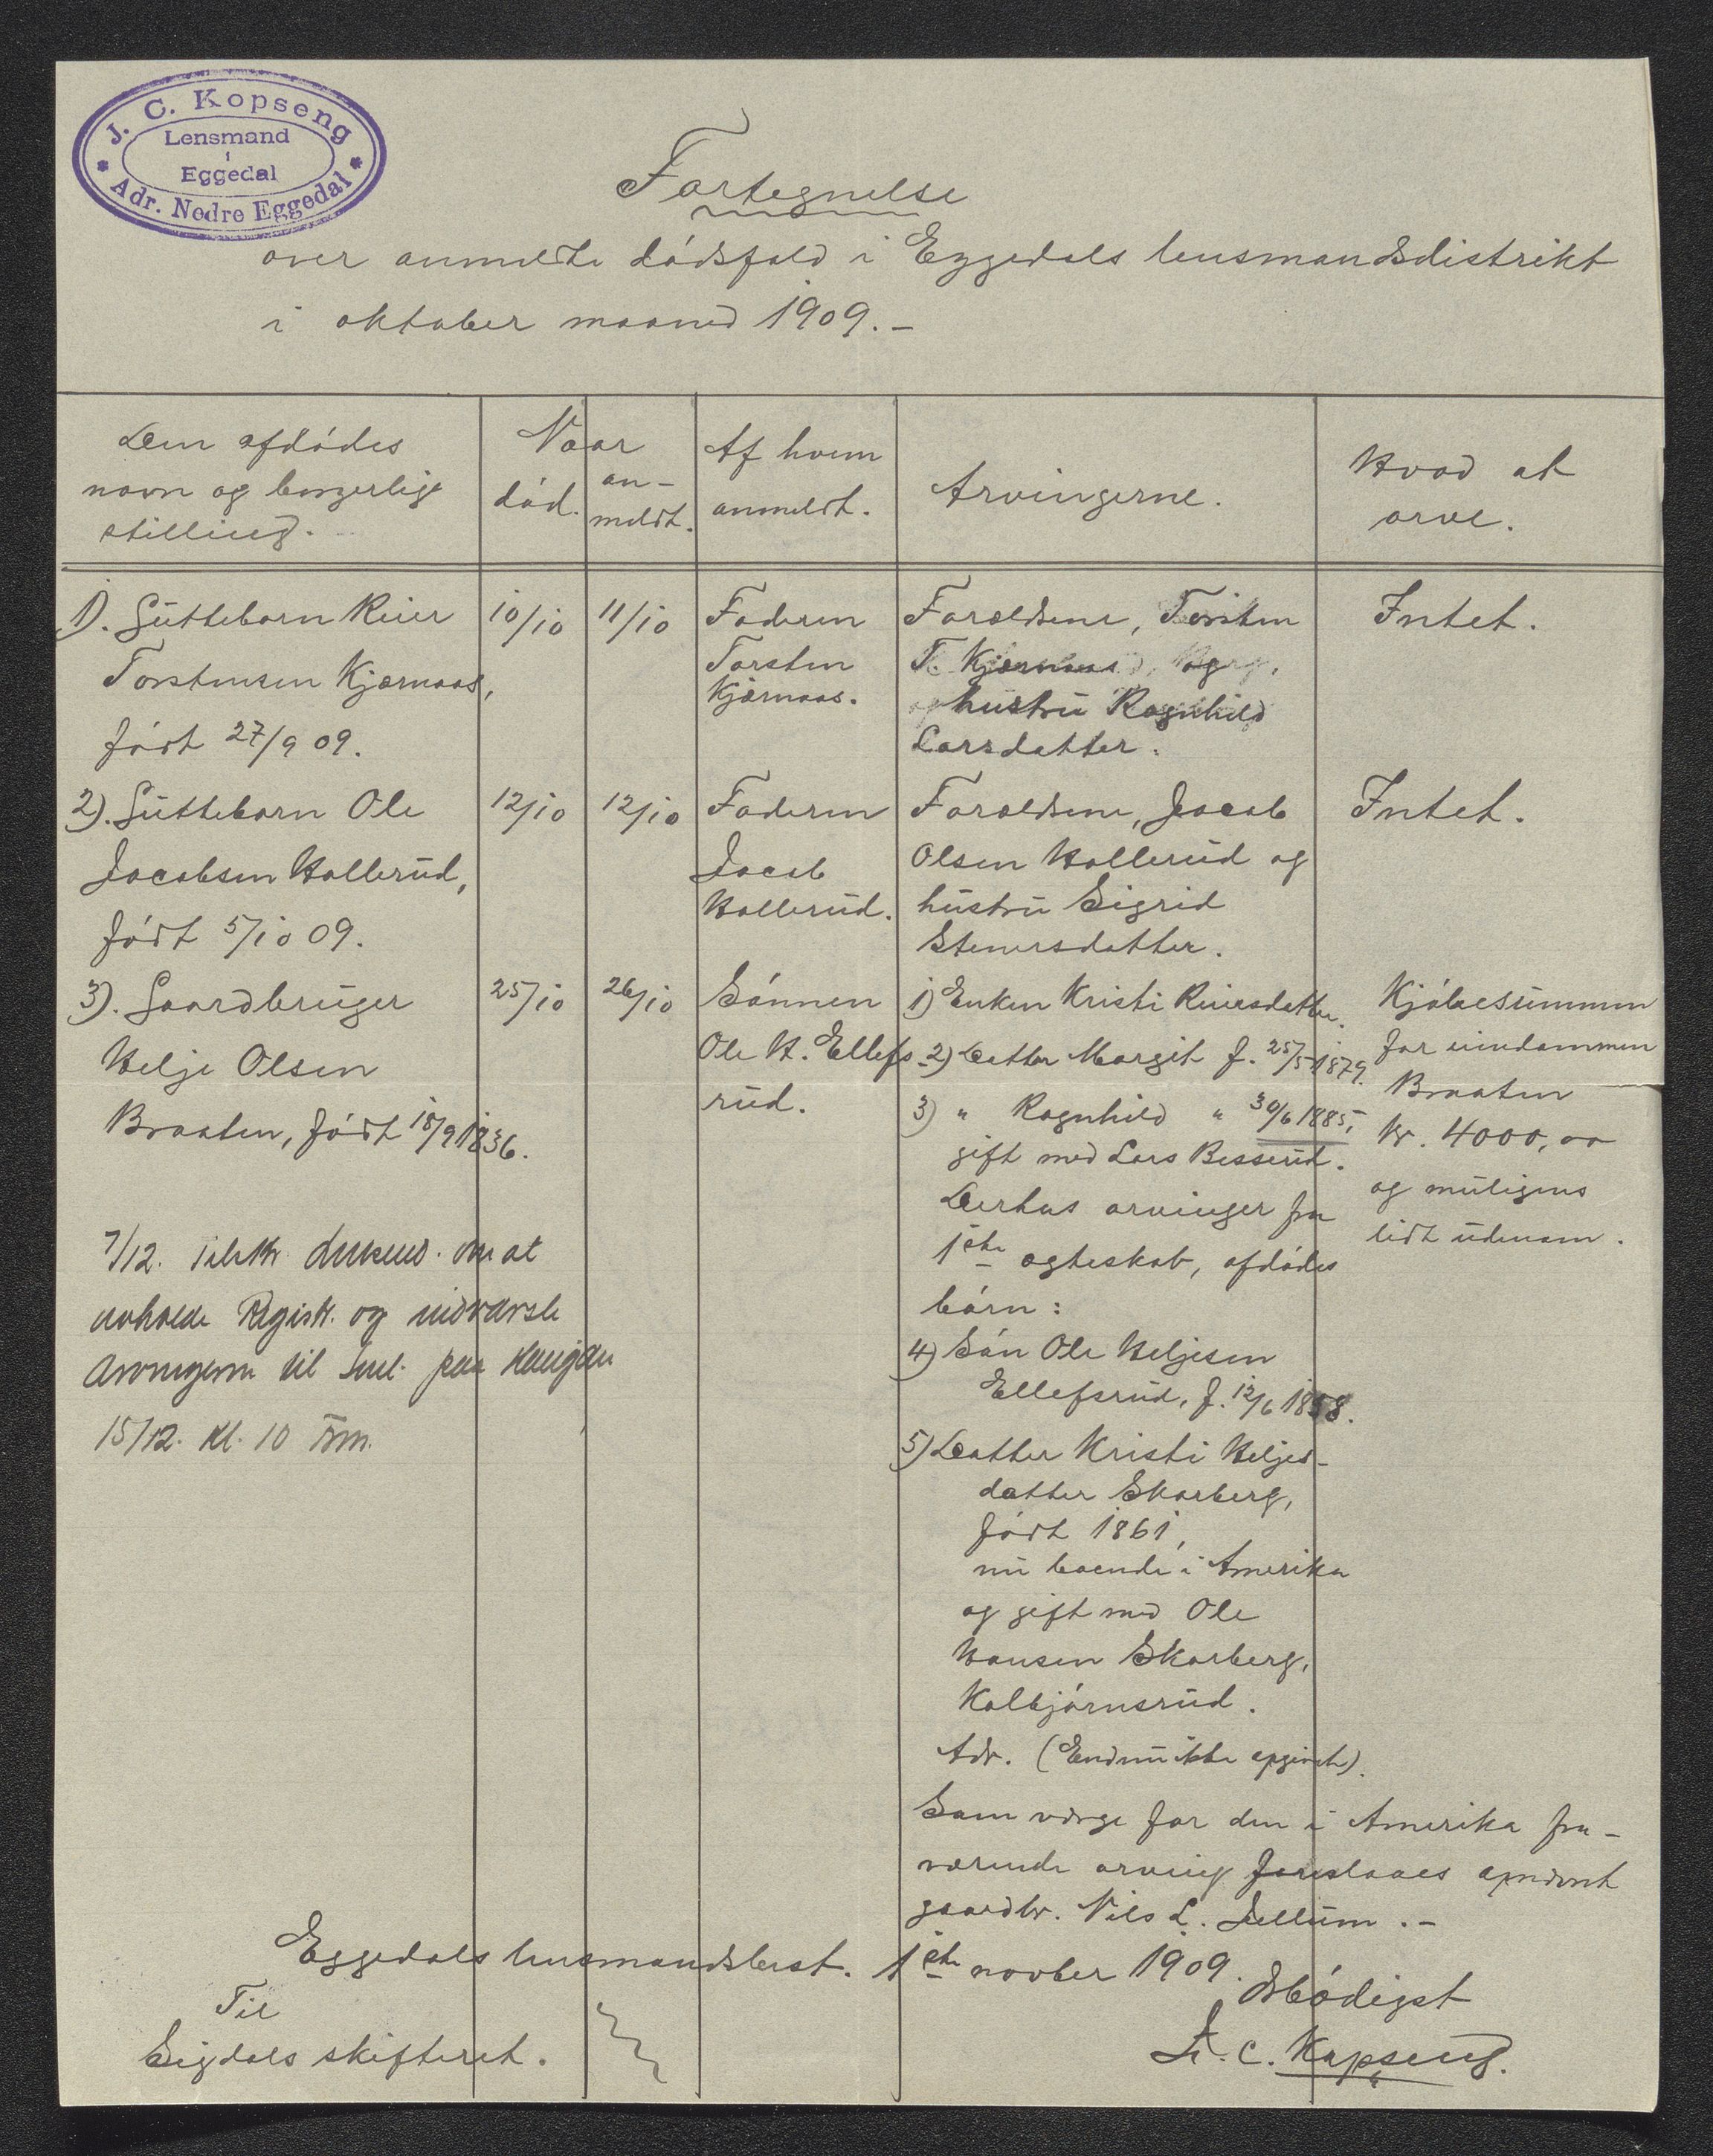 J. C. Kopseng
Lensmand
i
Eggedal
Adr. Nedre Eggedal
Fortegnelse
over anmeldte dødsfald i Eggedals lensmandsdistrikt
i oktober maaned 1909.-
Den afdødes
navn og borgerlige
stilling.
Naar
død.
an-
meldt.
Af hvem
anmeldt.
Arvingerne.
Hvad at
arve.
1). Guttebarn Reier
Torstensen Kjærnaas,
født 27/9 09.
10/10
11/10
Faderen
Torsten
Kjærnaas.
Forældrene, Torsten
T. Kjærnaas og
hustru Ragnhild
Larsdatter.
Intet.
2). Guttebarn Ole
Jacobsen Hollerud,
født 5/10 09.
12/10
12/10
Faderen
Jacob
Hollerud.
Forældrene, Jacob
Olsen Hollerud og
hustru Sigrid
Stenersdatter.
Intet.
3). Gaardbruger
Helje Olsen
Braaten, født 18/9 1836.
25/10
26/10
Sønnen
Ole H. Ellefs-
rud.
1) Enken Kristi Reiersdatter.
2) Datter Margit f. 25/5 1879.
3) " Ragnhild " 30/6 1885,
gift med Lars Besserud.
Derhos arvinger fra
1ste ægteskab, afdødes
børn:
4) Søn Ole Heljesen
Ellefsrud, f. 12/6 1858.
5) Datter Kristi Heljes-
datter Skarberg,
født 1861,
nu boende i Amerika
og gift med Ole
Hansen Skarberg,
Kolbjørnsrud.
Adr. (Endnu ikke opgivet).
Som værge for den i Amerika fra-
værende arving foreslaaes opnævnt
gaardbr. Nils L. Jellum.-
Kjøbesummen
for eiendommen
Braaten
kr. 4000,00
og muligens
lidt udenom.
7/12. Tilskr. om at
avholde Registr. og indvarsle
Arvingerne til paa
15/12. Kl. 10 Fm.
Eggedals lensmandsbest. 1ste novber 1909.
Ærbødigst
J. C. Kopseng.
Til
Sigdals skifteret.